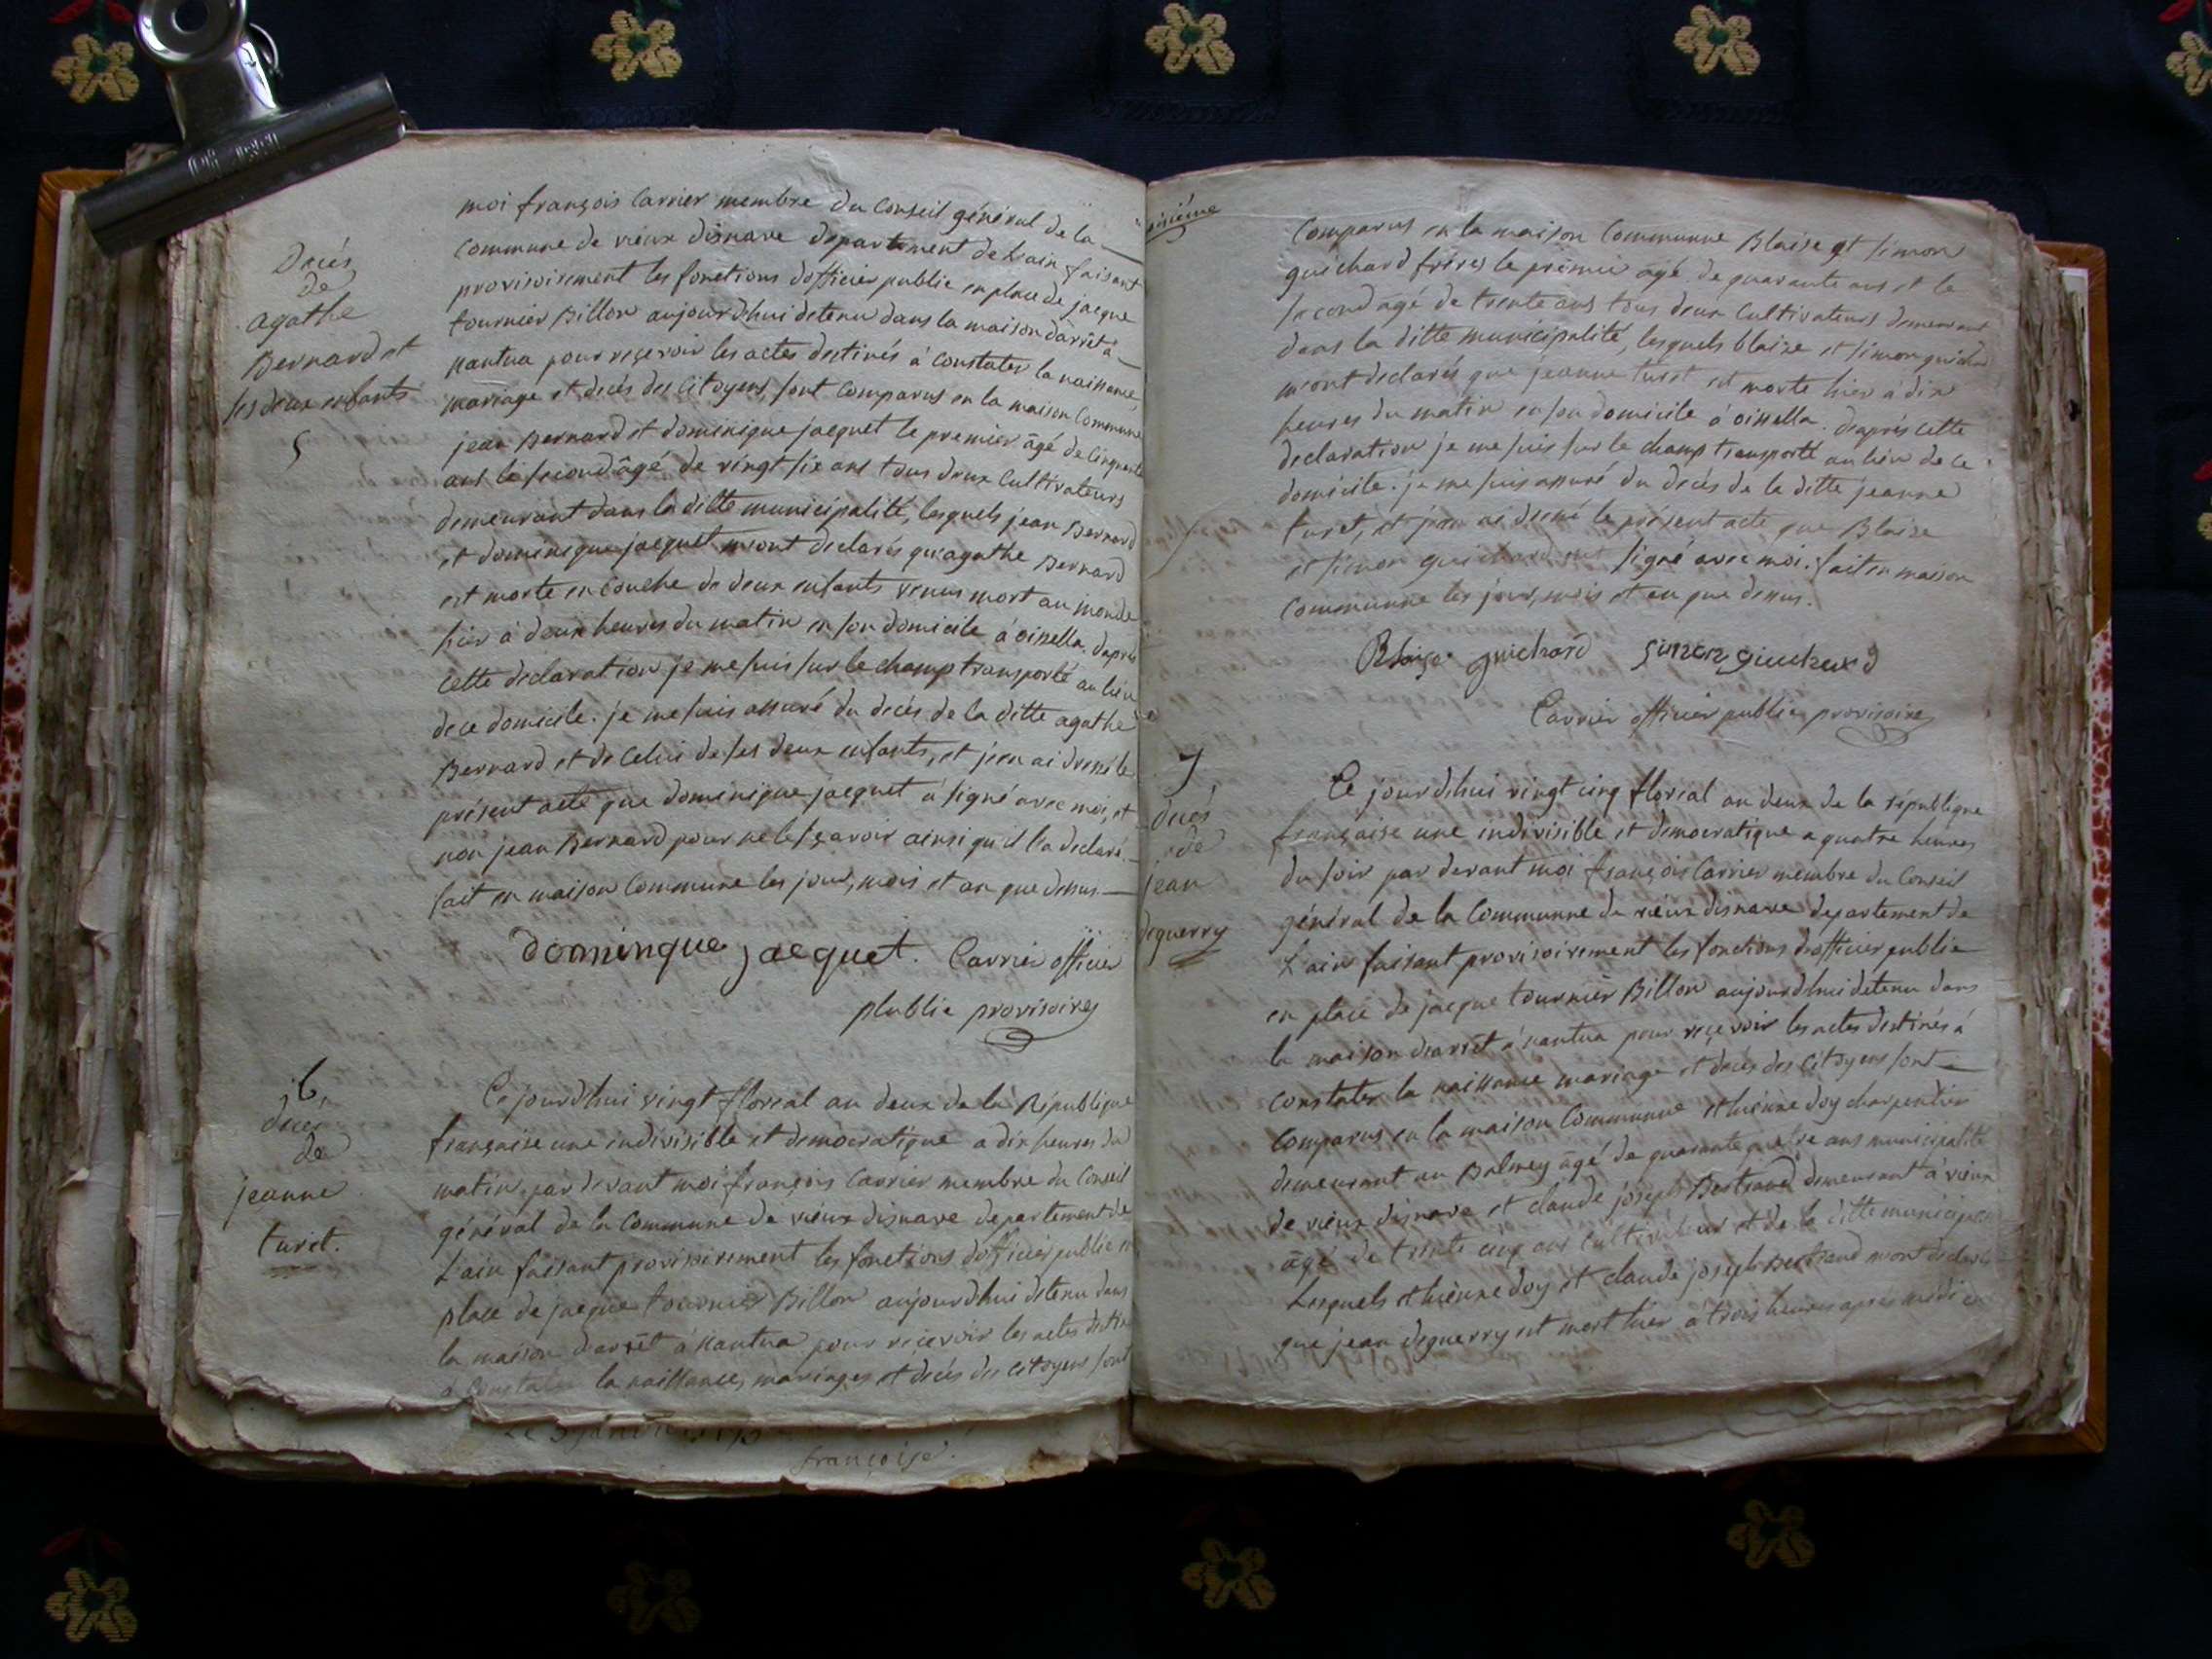 moi françois Carrier membre du Conseil général de la
Commune de vieux disnave departement de L'ain faisant
provisoirement les fonctions dofficier public en place de jacque
tournier Billon aujourd'hui detenu dans la maison d'arrêt à
Nantua pour reçevoir les actes destinés à constater la naissance,
mariage et decés des Citoyens, sont Comparus en la maison Commune
jean Bernard et dominique jacquet le premier âgé de Cinquante
ans le second âgé de vingt six ans tous deux Cultivateurs
demeurant dans la ditte municipalité, lesquels jean Bernard
et dominique jacquet m'ont declarés qu'agathe Bernard
est morte en Couche de deux enfants venus mort au monde
hier à deux heures du matin en son domicile à oissella. d'après
Cette declaration je me suis sur le champ transporté au lieu
de ce domicile. je me suis assuré du decés de la ditte agathe
Bernard et de Celui de ses deux enfants, et j'en ai dressé le
présent acte que dominique jacquet a signé avec moi, et
non jean Bernard pour ne le sçavoir ainsi qu'il l'a declaré.
fait en maison Commune les jour, mois et an que dessus.
dominque jacquet. Carrier officier
plublic provisoire
Decés
de
agathe
Bernard et
ses deux enfants
5
6,
decés
de
jeanne
turet.
Ce jourd'hui vingt floreal an deux de la République
française une indivisible et democratique a dix heures du
matin, par devant moi françois Carrier membre du Conseil
général de la Commune de vieux disnave departement de
L'ain faisant provisoirement les fonctions dofficier public en
place de jacque tournier Billon aujourd'hui detenu dans
la maison d'arrêt à Nantua pour recevoir les actes destinés
à Constater la naissance, mariages et décés des Citoyens sont
françoise.
Comparus en la maison Commune Blaise et simon
guichard frères le premier âgé de quarante ans et le
second âgé de trente ans tous deux Cultivateurs demeurant
dans la ditte municipalité, lesquels blaise et simon guichard
m'ont declarés que jeanne turet est morte hier à dix
heures du matin en son domicile à oissella. d'aprés cette
declaration je me suis sur le champ transporté au lieu de ce
domicile. je me suis assuré du decés de la ditte jeanne
turet, et j'en ai dressé le présent acte que Blaise
et simon guichard ont signé avec moi. fait en maison
Commune les jour, mois et an que dessus.
Blaise guichard simon guichard
Carrier officier public provisoire
7
decés
de
jean
deguerry
Ce jourd'hui vingt cinq floréal an deux de la république
française une indivisible et democratique a quatre heures
du soir par devant moi françois Carrier membre du Conseil
général de la Commune de vieux disnave departement de
L'ain faisant provisoirement les fonctions d'officier public
en place de jacque tournier Billon aujourd'hui detenu dans
la maison d'arrêt à nantua pour reçevoir les actes destinés à
Constater la naissance mariage et decés des Citoyens sont
Comparus en la maison Commune ethienne doy charpentier
demeurant au Balmey âgé de quarante quatre ans municipalité
de vieux disnave et claude joseph Bertrand demeurant à vieux
âgé de trente cinq ans cultivateur et de la ditte municipalité
Lesquels ethienne doy et claude joseph Bertrand m'ont declarés
que jean deguerry est mort hier à trois heures après midi en